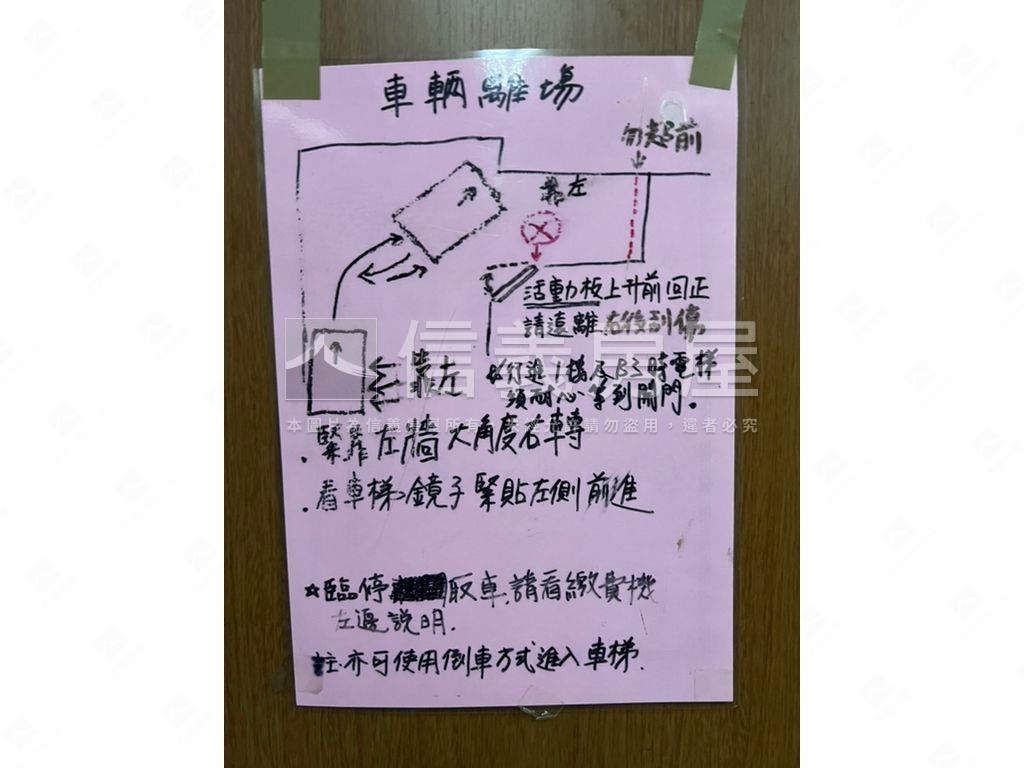 車輛離場
勿超前
靠左
活動板上升前回正
請遠離,右後到停
信義房屋
靠左
行進1樓及B3時電梯
須耐心等到開門.
本圖片為信義房屋所有,未經允許請勿盜用,違者必究
.緊靠左牆大角度右轉
.看車梯鏡子緊貼左側前進
☆臨停取車,請看繳費機
左邊說明.
註:亦可使用倒車方式進入車梯.